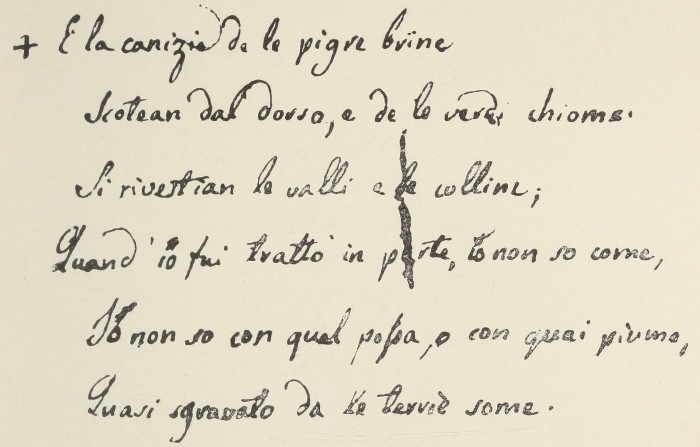 + E la canizie de le pigre brine
Scotean dal dorso, e de le verdi chiome.
Si rivestian le valli e le colline;
Quand' io fui tratto in parte, Io non so come,
Io non so con qual possa, o con quai piume,
Quasi sgravato da le terree some.